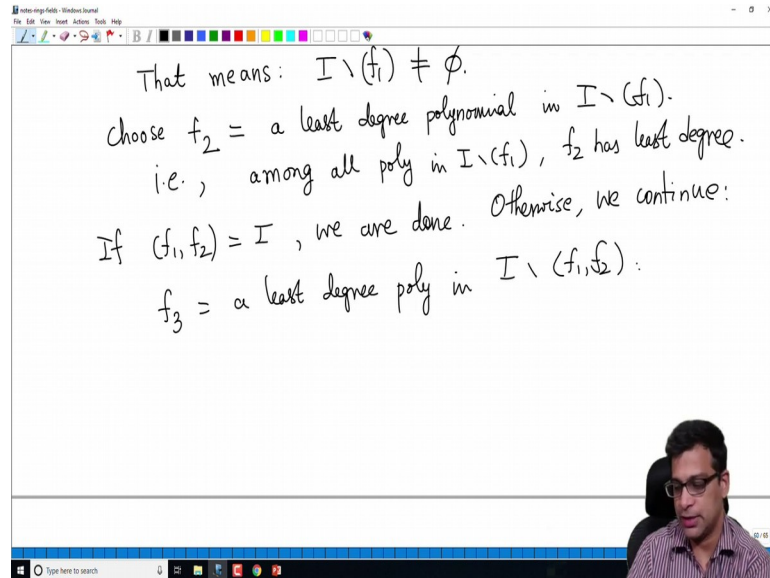 notes-rings-fields - Windows Journal
File Edit View Insert Actions Tools Help
That means: I \ (f₁) ≠ ∅.
Choose f₂ = a least degree polynomial in I \ (f₁).
i.e., among all poly in I \ (f₁), f₂ has least degree.
If (f₁, f₂) = I, we are done. Otherwise, we continue:
f₃ = a least degree poly in I \ (f₁, f₂).
60 / 65
Type here to search